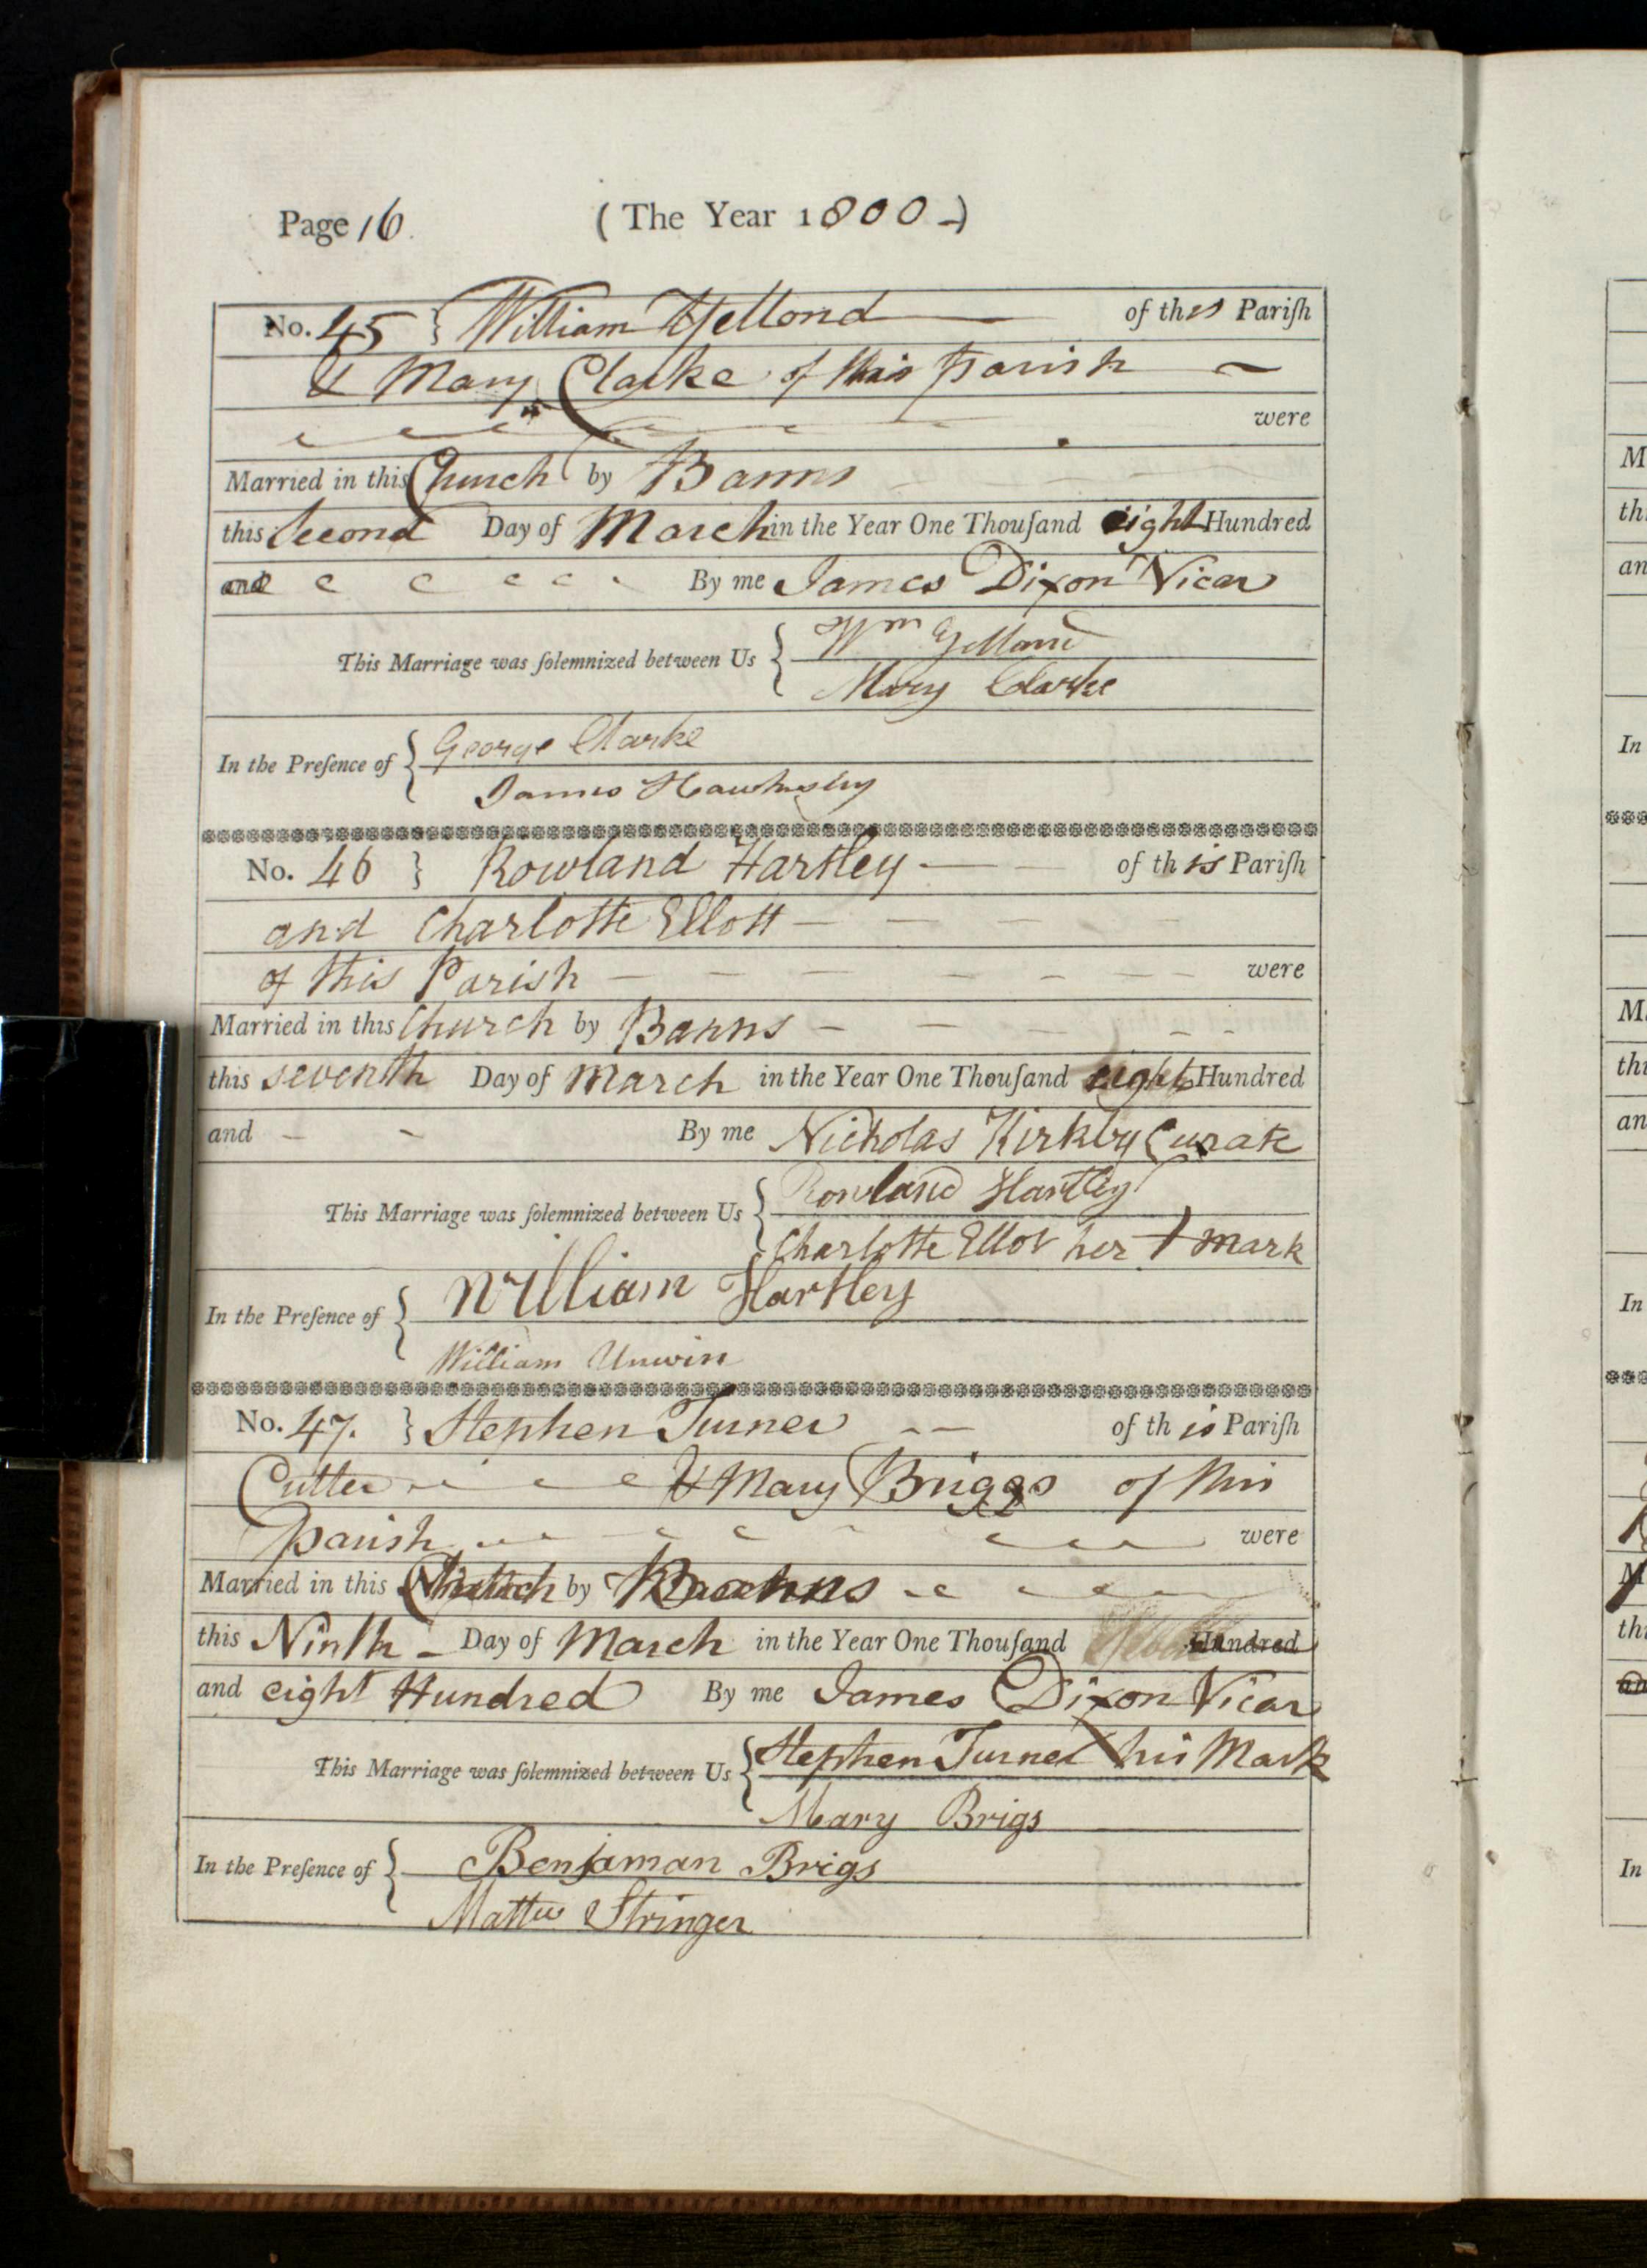 Page 16. (The Year 1800-)
No. 45 } William Yelland of this Pariſh
& Mary Clarke of this Parish
were
Married in this Church by Banns
this Second Day of March in the Year One Thouſand eight Hundred
and By me James Dixon Vicar
This Marriage was ſolemnized between Us { Wm Yelland
Mary Clarke
In the Preſence of { George Clarke
James
No. 46 } Rowland Hartley of this Pariſh
and Charlotte Ellott
of this Parish were
Married in this Church by Banns
this seventh Day of March in the Year One Thouſand eight Hundred
and By me Nicholas Kirkby Curate
This Marriage was ſolemnized between Us { Rowland Hartley
Charlotte Ellot her + mark
In the Preſence of { William Hartley
William Unwin
No. 47. } Stephen Turner of this Pariſh
Cutler & Mary Briggs of this
Parish were
Married in this Church by Banns
this Ninth Day of March in the Year One Thouſand Hundred
and eight Hundred By me James Dixon Vicar
This Marriage was ſolemnized between Us { Stephen Turner X his Mark
Mary Brigs
In the Preſence of { Benjaman Brigs
Mattw Stringer
M
th
an
In
M
thi
an
In
M
thi
an
In